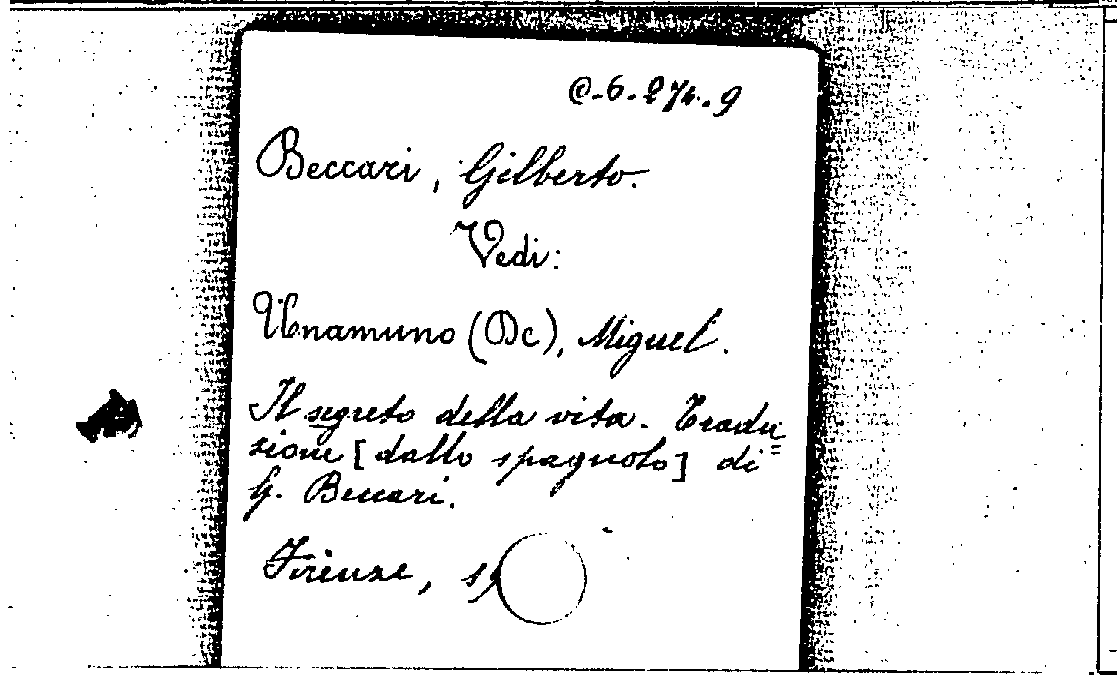 @-6.274.9
Beccari, Gilberto.
Vedi:
Unamuno (De), Miguel.
Il segreto della vita. Tradu=
zione [dallo spagnolo] di
G. Beccari.
Firenze, 19